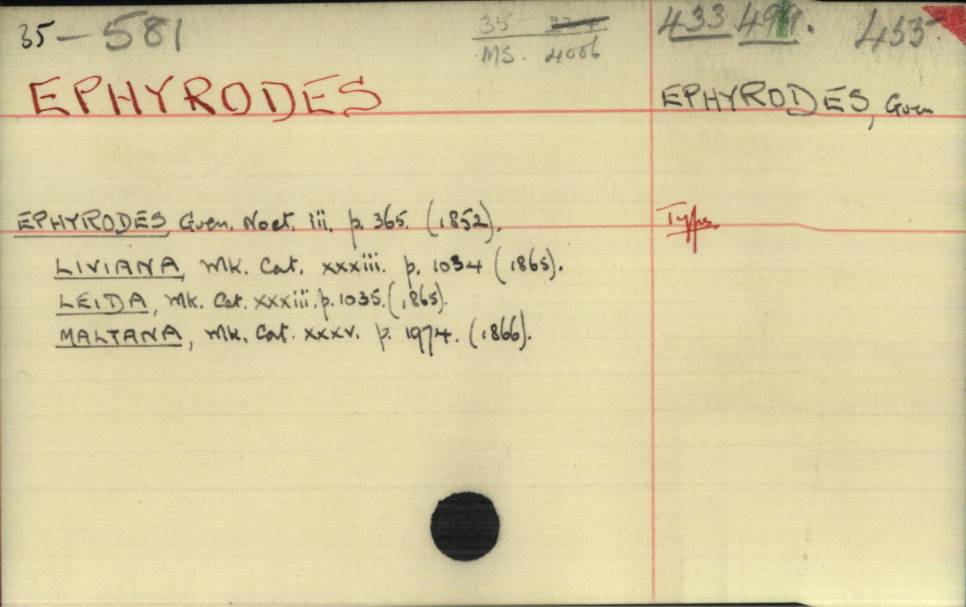 35 — 581
35
MS. 4006
433 491. 455.
EPHYRODES
EPHYRODES, Guen
EPHYRODES Guen. Noct. iii. p. 365. (1852).
Type
LIVIANA, Wlk. Cat. xxxiii. p. 1034 (1865).
LEIDA, Wlk. Cat. xxxiii. p. 1035. (1865).
MALTANA, Wlk. Cat. xxxv. p. 1974. (1866).